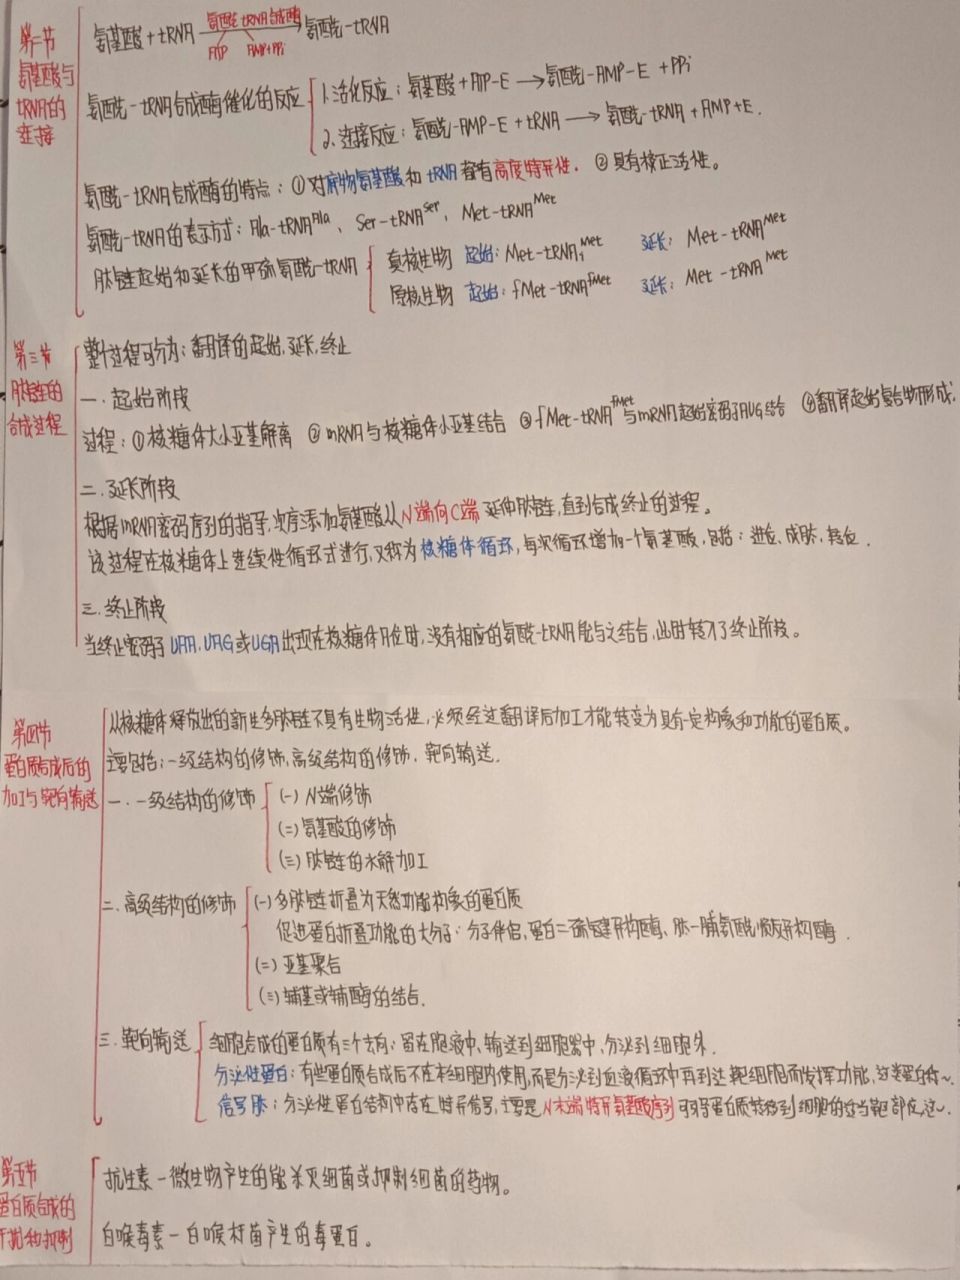 第二节
氨基酸与
tRNA的
连接
氨基酸+tRNA 氨酰-tRNA合成酶 ATP AMP+PPi → 氨酰-tRNA
氨酰-tRNA合成酶催化的反应
1.活化反应：氨基酸+ATP-E→氨酰-AMP-E+PPi
2.连接反应：氨酰-AMP-E+tRNA→氨酰-tRNA+AMP+E.
氨酰-tRNA合成酶的特点：①对底物氨基酸和tRNA都有高度特异性. ②具有校正活性。
氨酰-tRNA的表示方式：Ala-tRNA^Ala、Ser-tRNA^Ser、Met-tRNA^Met
肽链起始和延长的甲硫氨酰-tRNA
真核生物 起始：Met-tRNAi^Met 延长：Met-tRNA^Met
原核生物 起始：fMet-tRNA^fMet 延长：Met-tRNA^Met
第三节
肽链的
合成过程
整个过程可分为：翻译的起始,延长,终止
一.起始阶段
过程：①核糖体大小亚基解离 ②mRNA与核糖体小亚基结合 ③fMet-tRNA^fMet与mRNA起始密码子AUG结合 ④翻译起始复合物形成.
二.延长阶段
根据mRNA密码序列的指导,次序添加氨基酸从N端向C端延伸肽链,直到合成终止的过程。
该过程在核糖体上连续性循环式进行,又称为核糖体循环,每次循环增加一个氨基酸,包括：进位、成肽、转位.
三.终止阶段
当终止密码子UAA、UAG或UGA出现在核糖体A位时,没有相应的氨酰-tRNA能与之结合,此时转入了终止阶段。
第四节
蛋白质合成后的
加工与靶向输送
从核糖体释放出的新生多肽链不具有生物活性,必须经过翻译后加工才能转变为具有一定构象和功能的蛋白质。
主要包括：一级结构的修饰,高级结构的修饰,靶向输送.
一.一级结构的修饰
(一)N端修饰
(二)氨基酸的修饰
(三)肽链的水解加工
二.高级结构的修饰
(一)多肽链折叠为天然功能构象的蛋白质
促进蛋白折叠功能的大分子：分子伴侣,蛋白二硫键异构酶、肽-脯氨酰顺反异构酶.
(二)亚基聚合
(三)辅基或辅酶的结合.
三.靶向输送
细胞合成的蛋白质有三个去向：留在胞液中,输送到细胞器中,分泌到细胞外.
分泌性蛋白：有些蛋白质合成后不在本细胞内使用,而是分泌到血液循环中再到达靶细胞而发挥功能,这类蛋白称~.
信号肽：分泌性蛋白结构中存在特异信号,主要是N末端特异氨基酸序列可引导蛋白质转移到细胞的适当靶部位,这~.
第五节
蛋白质合成的
干扰和抑制
抗生素-微生物产生的能杀灭细菌或抑制细菌的药物。
白喉毒素-白喉杆菌产生的毒蛋白。